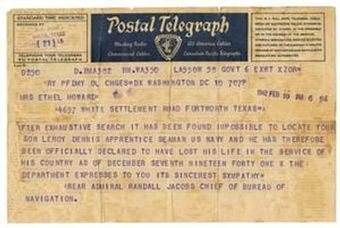 STANDARD TIME INDICATED
Postal Telegraph
Mackay Radio All America Cables
Commercial Cables Canadian Pacific Telegraphs
D230 D.XMA352 WA350 L55GOW 55 GOVT 6 EXWT XZOR=
RY PFDMY OL CHGS=DX WASHINGTON DC 10 707P
MRS ETHEL HOWARD=
4637 WHITE SETTLEMENT ROAD FORTWORTH TEXAS=
1942 FEB 10 PM 6 56
FTER EXHAUSTIVE SEARCH IT HAS BEEN FOUND IMPOSSIBLE TO LOCATE YOUR
SON LEROY DENNIS APPRENTICE SEAMAN US NAVY AND HE HAS THEREFORE
BEEN OFFICIALLY DECLARED TO HAVE LOST HIS LIFE IN THE SERVICE OF
HIS COUNTRY AS OF DECEMBER SEVENTH NINETEEN FORTY ONE X THE
DEPARTMENT EXPRESSES TO YOU ITS SINCEREST SYMPATHY=
REAR ADMIRAL RANDALL JACOBS CHIEF OF BUREAU OF
NAVIGATION.